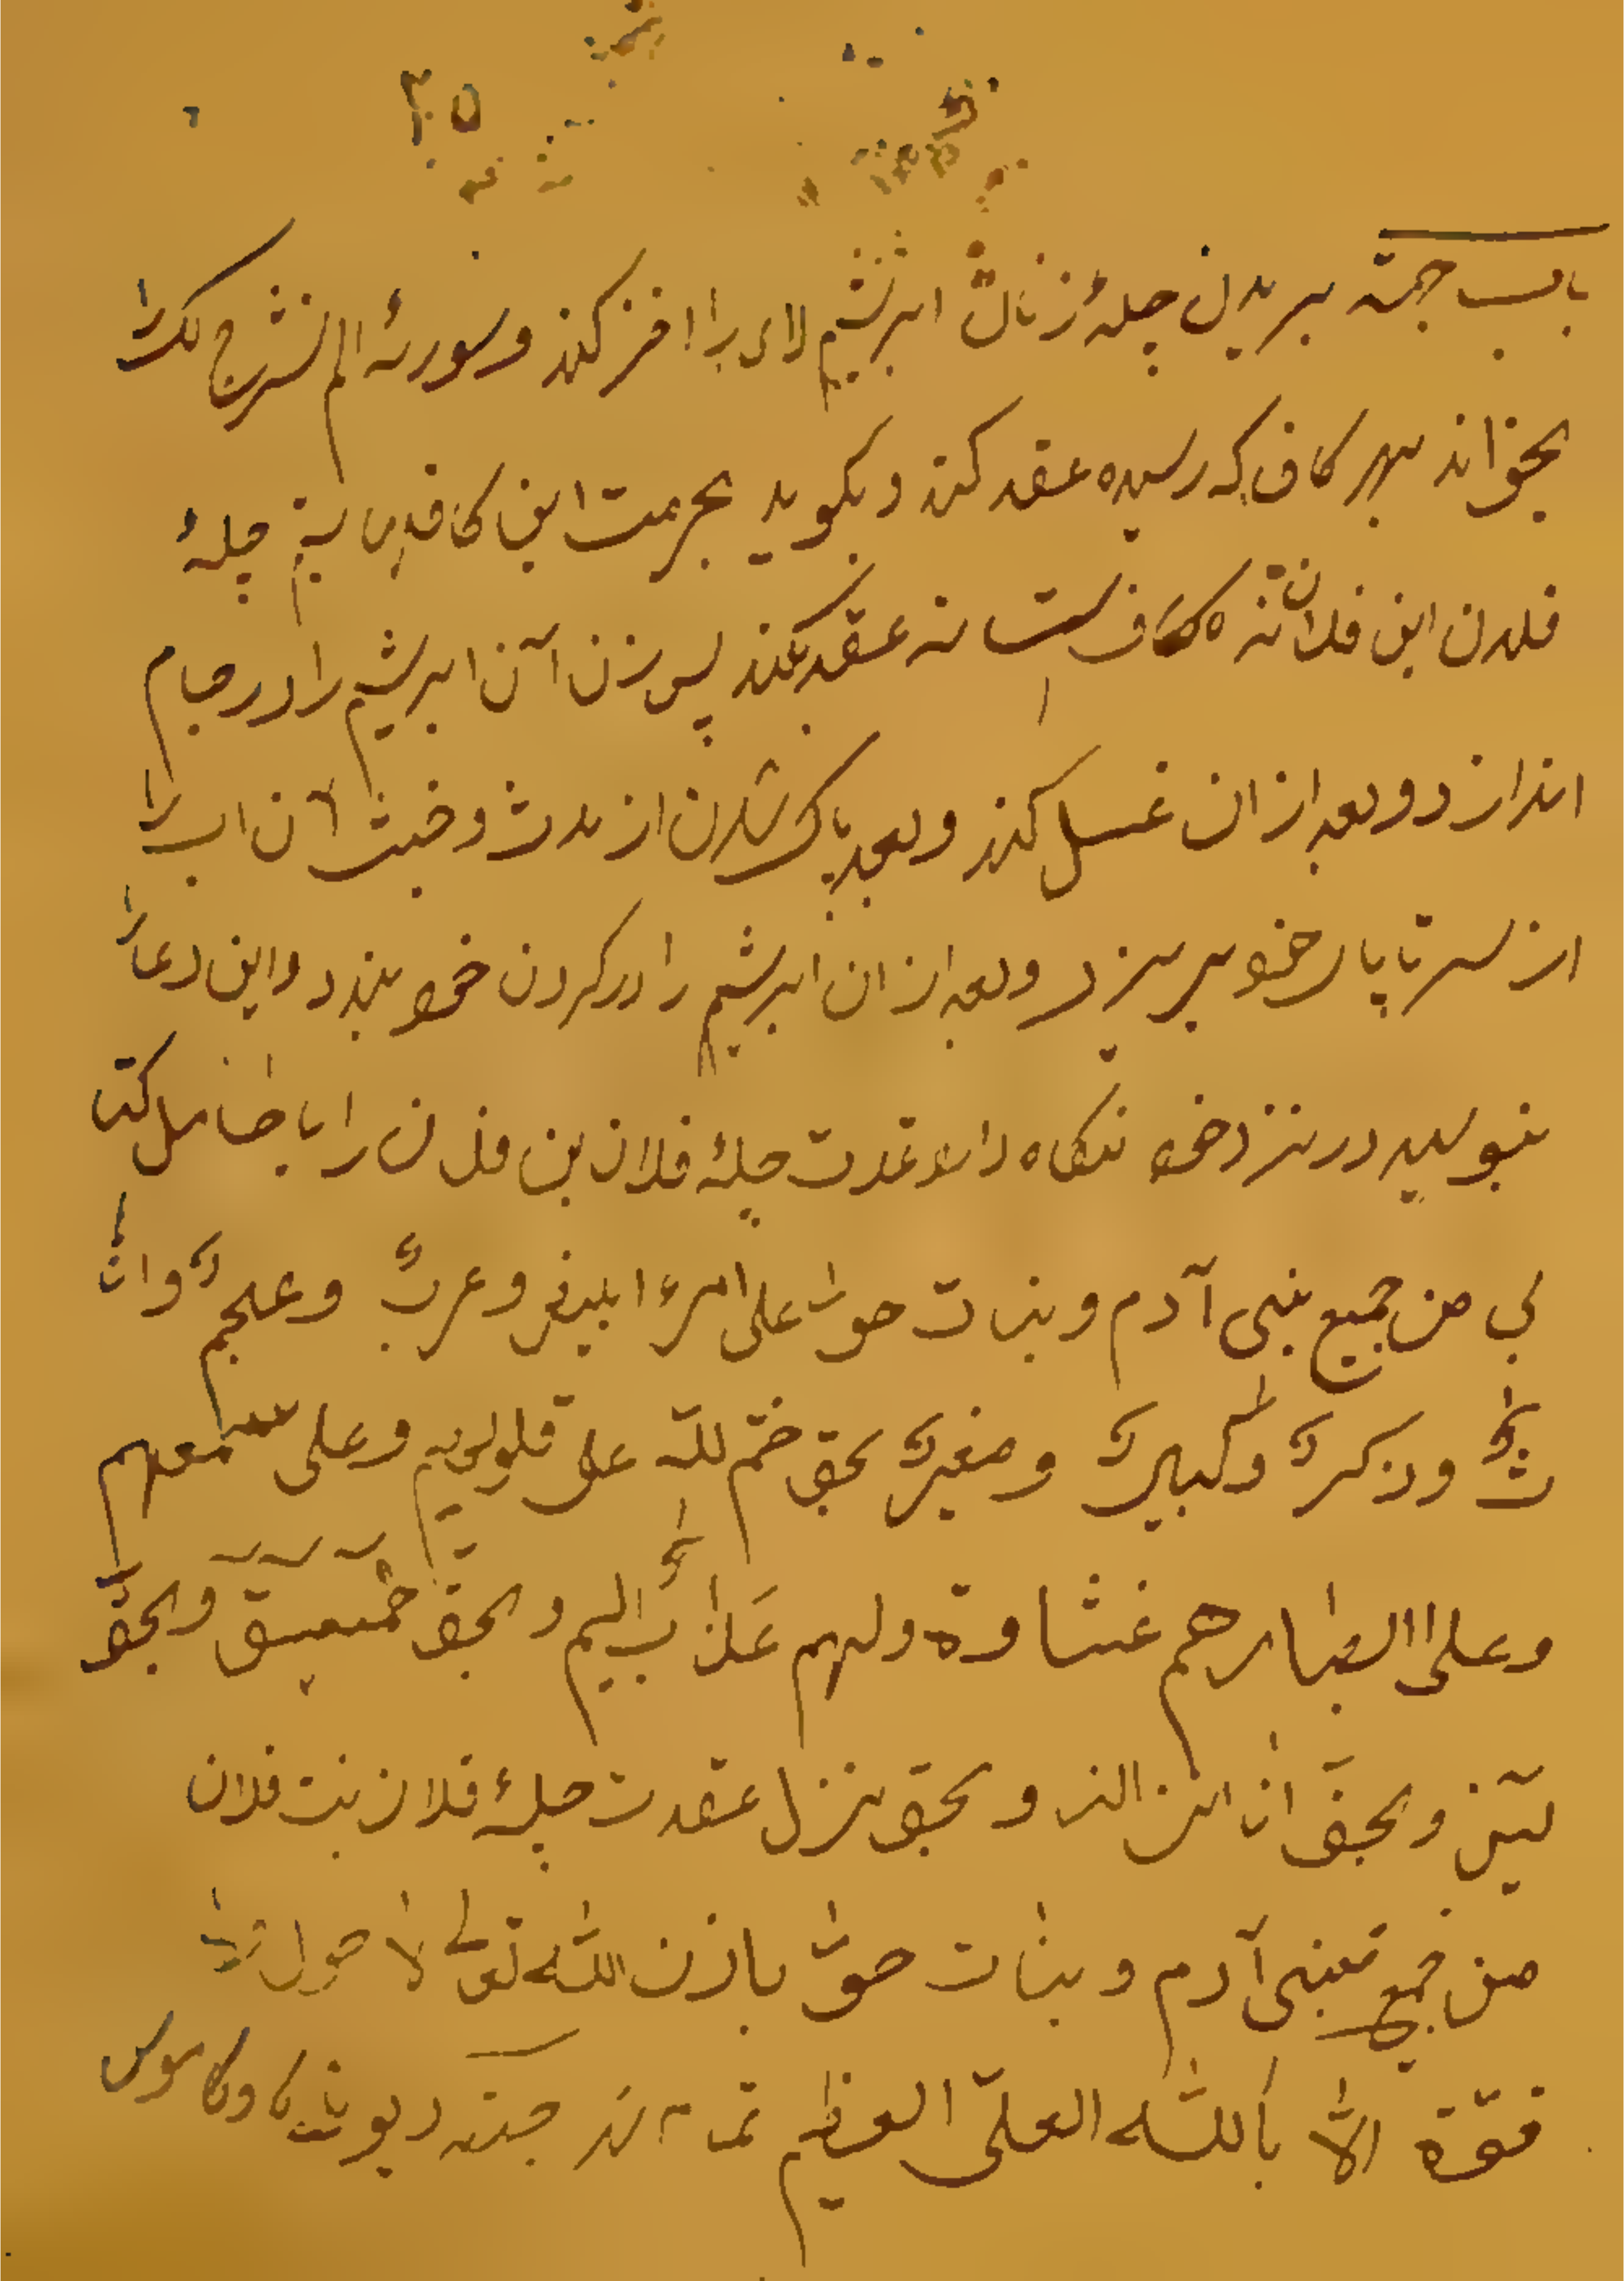 ۲۵
باب جهة بریدن چلهٔ زنان ابریشم لای را اخز کند و سورهٔ الم نشرح لک را
بخواند بهر کاف که رسیده عقد کند و بکوید بحرمت این کاف چلهٔ
فلان ابن فلان نه کاف است نه عقد بکند پس زن آن ابریشم را در جام
اندازد و بعد ازان غسل کند و بعد پاک شدن از حدث و خبث آن اب را
از سر تا پا خو بریزد و بعد ازان ابریشم را در کردن خو بندد و این دعا را
بنویسد در نزد خو نکاه دارد عقدت چلهٔ فلان بن فلان را
لي من جميع بنى آدم و بنات حوا على امرء ابيض و عرب و عجم و انا
ث و ذكر و كبير و صغير بحق ختم الله على قلوبهم و على سمعهم
و على ابصارهم غشاوة و لهم عذاب اليم و بحق حمعسق و بحق
يس و بحق انا انزالنز و بحق نزل عقدت چلهٔ فلان بنت فلان
من جميع بنى آدم و بنات حوا باذن الله تعالى لا حول و لا
قوة الا بالله العلى العظيم تمت جهته دیو